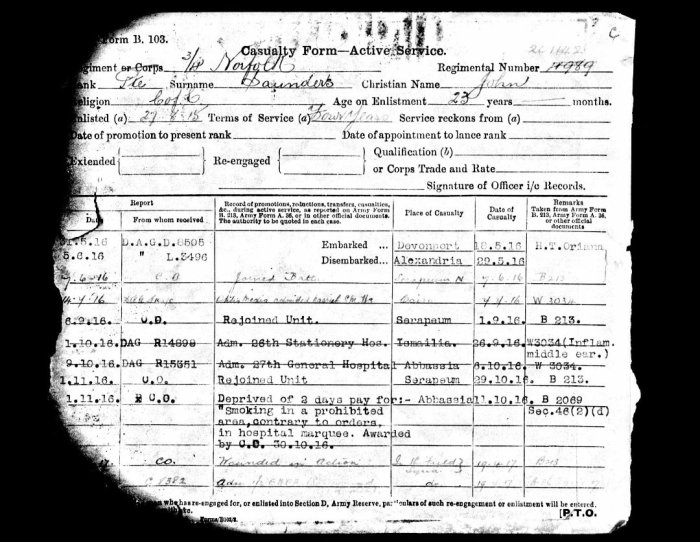 Form B. 103.
Casualty Form—Active Service.
Regiment or Corps 3/4 Norfolk Regimental Number 4989
Rank Pte Surname Saunders Christian Name John
Religion C of E Age on Enlistment 23 years months.
Enlisted (a) Terms of Service (a) Four Years Service reckons from (a)
Date of promotion to present rank Date of appointment to lance rank
Extended Re-engaged Qualification (b)
or Corps Trade and Rate
Signature of Officer i/c Records.
Report
Date From whom received
Record of promotions, reductions, transfers, casualties, &c., during active service, as reported on Army Form B. 213, Army Form A. 36, or in other official documents. The authority to be quoted in each case.
Place of Casualty
Date of Casualty
Remarks
Taken from Army Form B. 213, Army Form A. 36, or other official documents
31.5.16 D.A.G D.8505 Embarked ... Devonport 18.5.16 H.T.Oriana
5.6.16 " L.3496 Disembarked... Alexandria 29.5.16
7-6-16 C.O Joined Batt. Serapeum N 7-6-16 B213
W 3034
6.9.16. C.O. Rejoined Unit. Serapeum 1.9.16. B 213.
1.10.16. DAG R14899 Adm. 26th Stationery Hos. Ismailia. 26.9.16. W3034(Inflam. middle ear.)
9.10.16. DAG R15351 Adm. 27th General Hospital Abbassia 6.10.16. W 3034.
1.11.16. C.O. Rejoined Unit Serapeum 29.10.16. B 213.
1.11.16. C.O. Deprived of 2 days pay for:- Abbassia 11.10.16. B 2069
"Smoking in a prohibited Sec.46(2)(d)
area, contrary to orders,
in hospital marquee. Awarded
by C.O. 30.10.16.
CO. Wounded in Action
who has re-engaged for, or enlisted into Section D, Army Reserve, particulars of such re-engagement or enlistment will be entered.
[P.T.O.